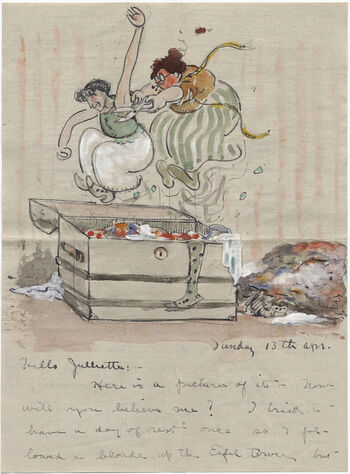 Sunday 13th apr.
Hello Jullietta:-
Here is a picture of it - Now
will you believe me? I tried to
have a day of rest once so I fol-
lowed a blonde up the Eifel Tower but